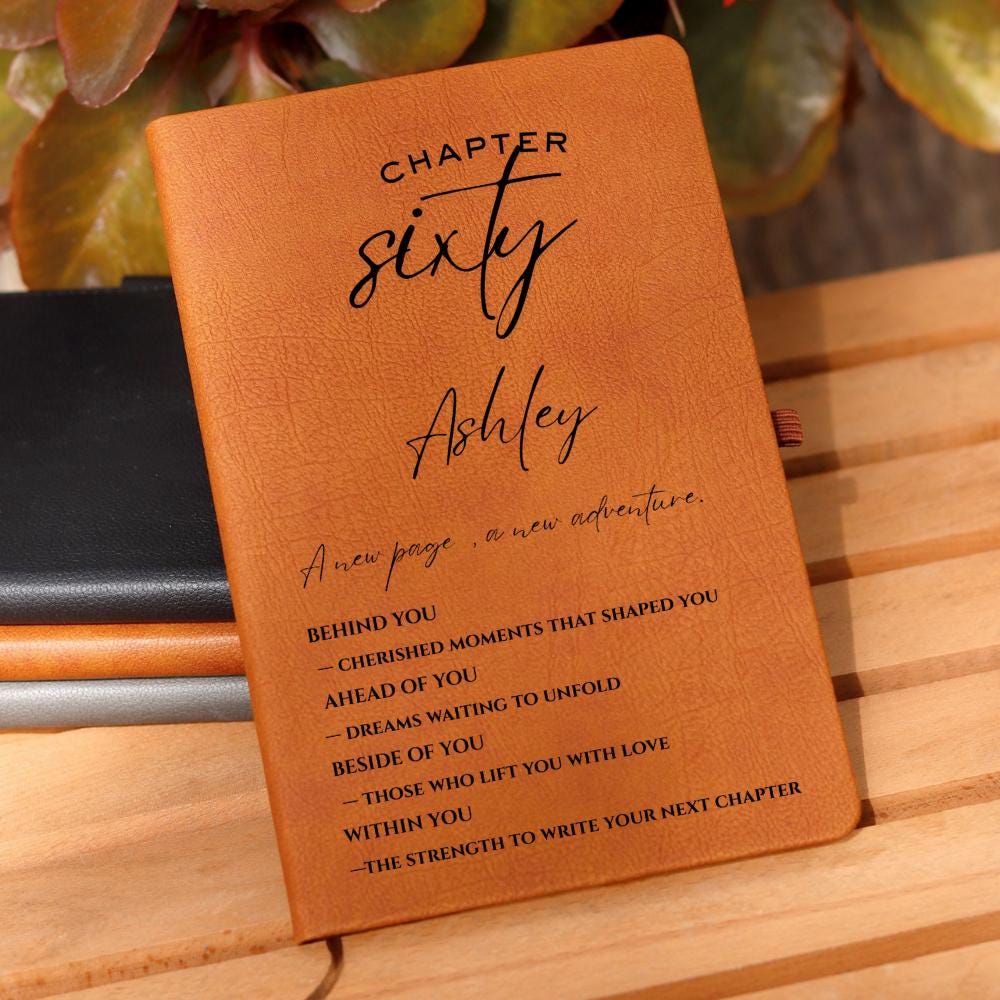 CHAPTER
sixty
Ashley
A new page , a new adventure.
BEHIND YOU
— CHERISHED MOMENTS THAT SHAPED YOU
AHEAD OF YOU
— DREAMS WAITING TO UNFOLD
BESIDE OF YOU
— THOSE WHO LIFT YOU WITH LOVE
WITHIN YOU
—THE STRENGTH TO WRITE YOUR NEXT CHAPTER